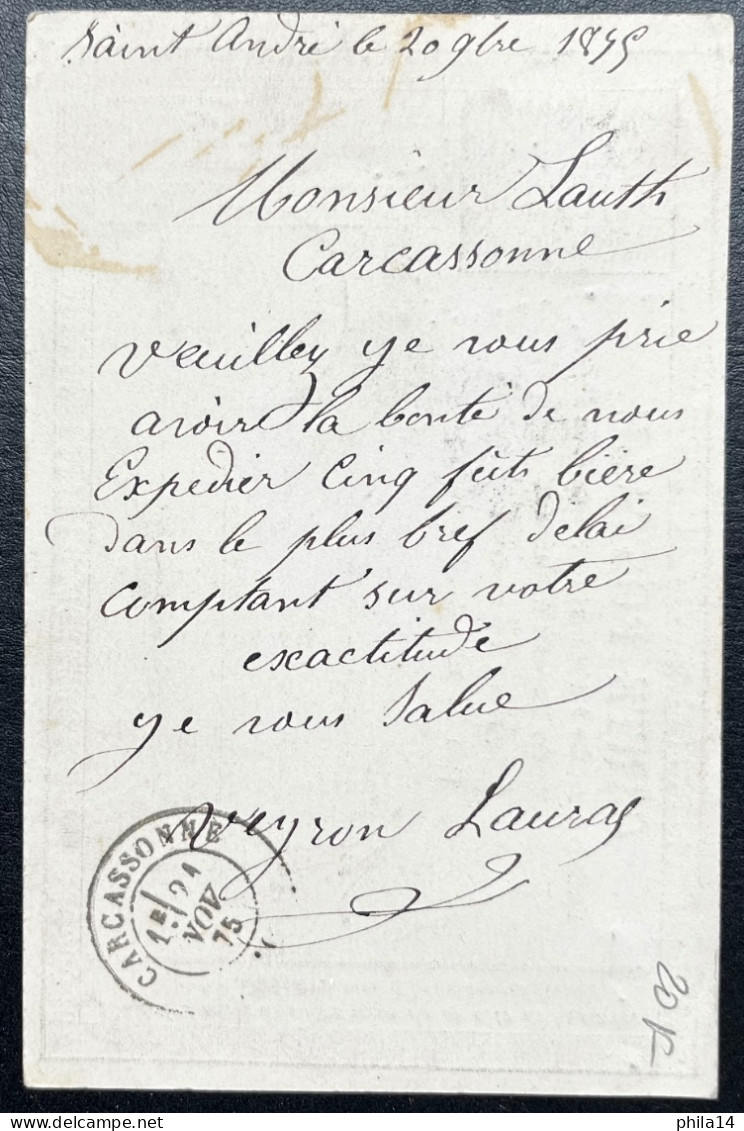 Saint André le 20 9bre 1875
Monsieur Lauth
Carcassonne
Veuillez ye vous prie
avoir la bonté de nous
Expedier Cinq fûts bière
dans le plus bref délai
comptant sur votre
exactitude
ye vous Salue
Veyron Lauras
CARCASSONNE
1E
21
NOV
75
20
phila14